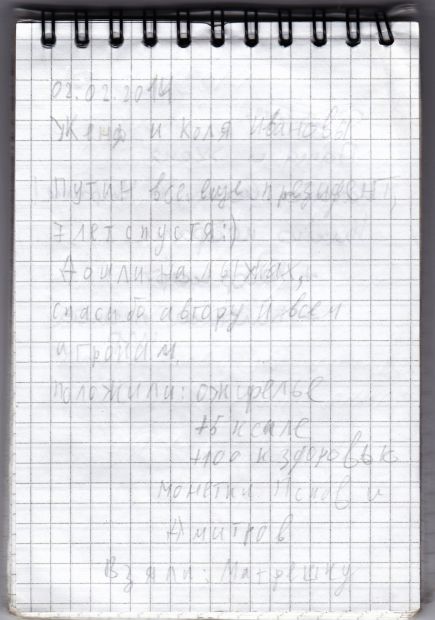 02.02.2014
Женя и Коля Ивановы
Путин все еще президент,
7 лет спустя :)
Дошли на лыжах,
спасибо автору и всем
игрокам.
Положили: ожирелье
+5 к силе
+100 к здоровью
монетки Псков и
Дмитров
Взяли: Матрешку